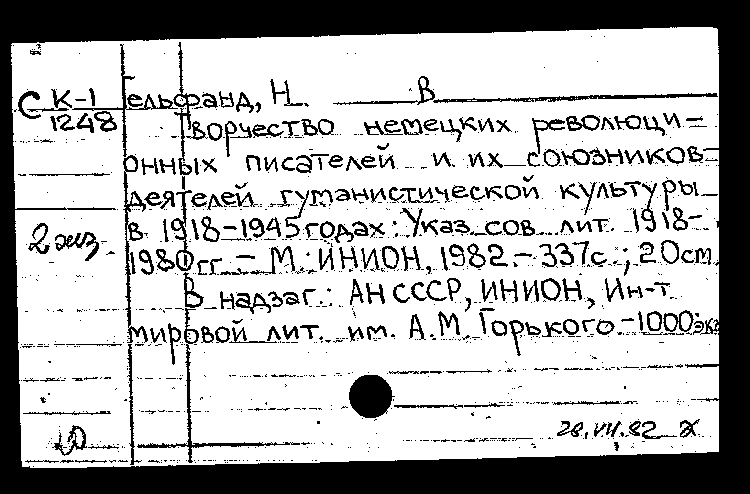 С К-1 Гельфранд, Н. В
1248 Творчество немецких революци-
онных писателей и их союзников-
деятелей гуманистической культуры
2 экз. в 1918-1945 годах: Указ сов лит. 1918-
1980 гг. - М.: ИНИОН, 1982. - 337с.; 20см
В надзаг.: АН СССР, ИНИОН, Ин-т
мировой лит. им. А.М. Горького. - 1000экз
28.VII.82